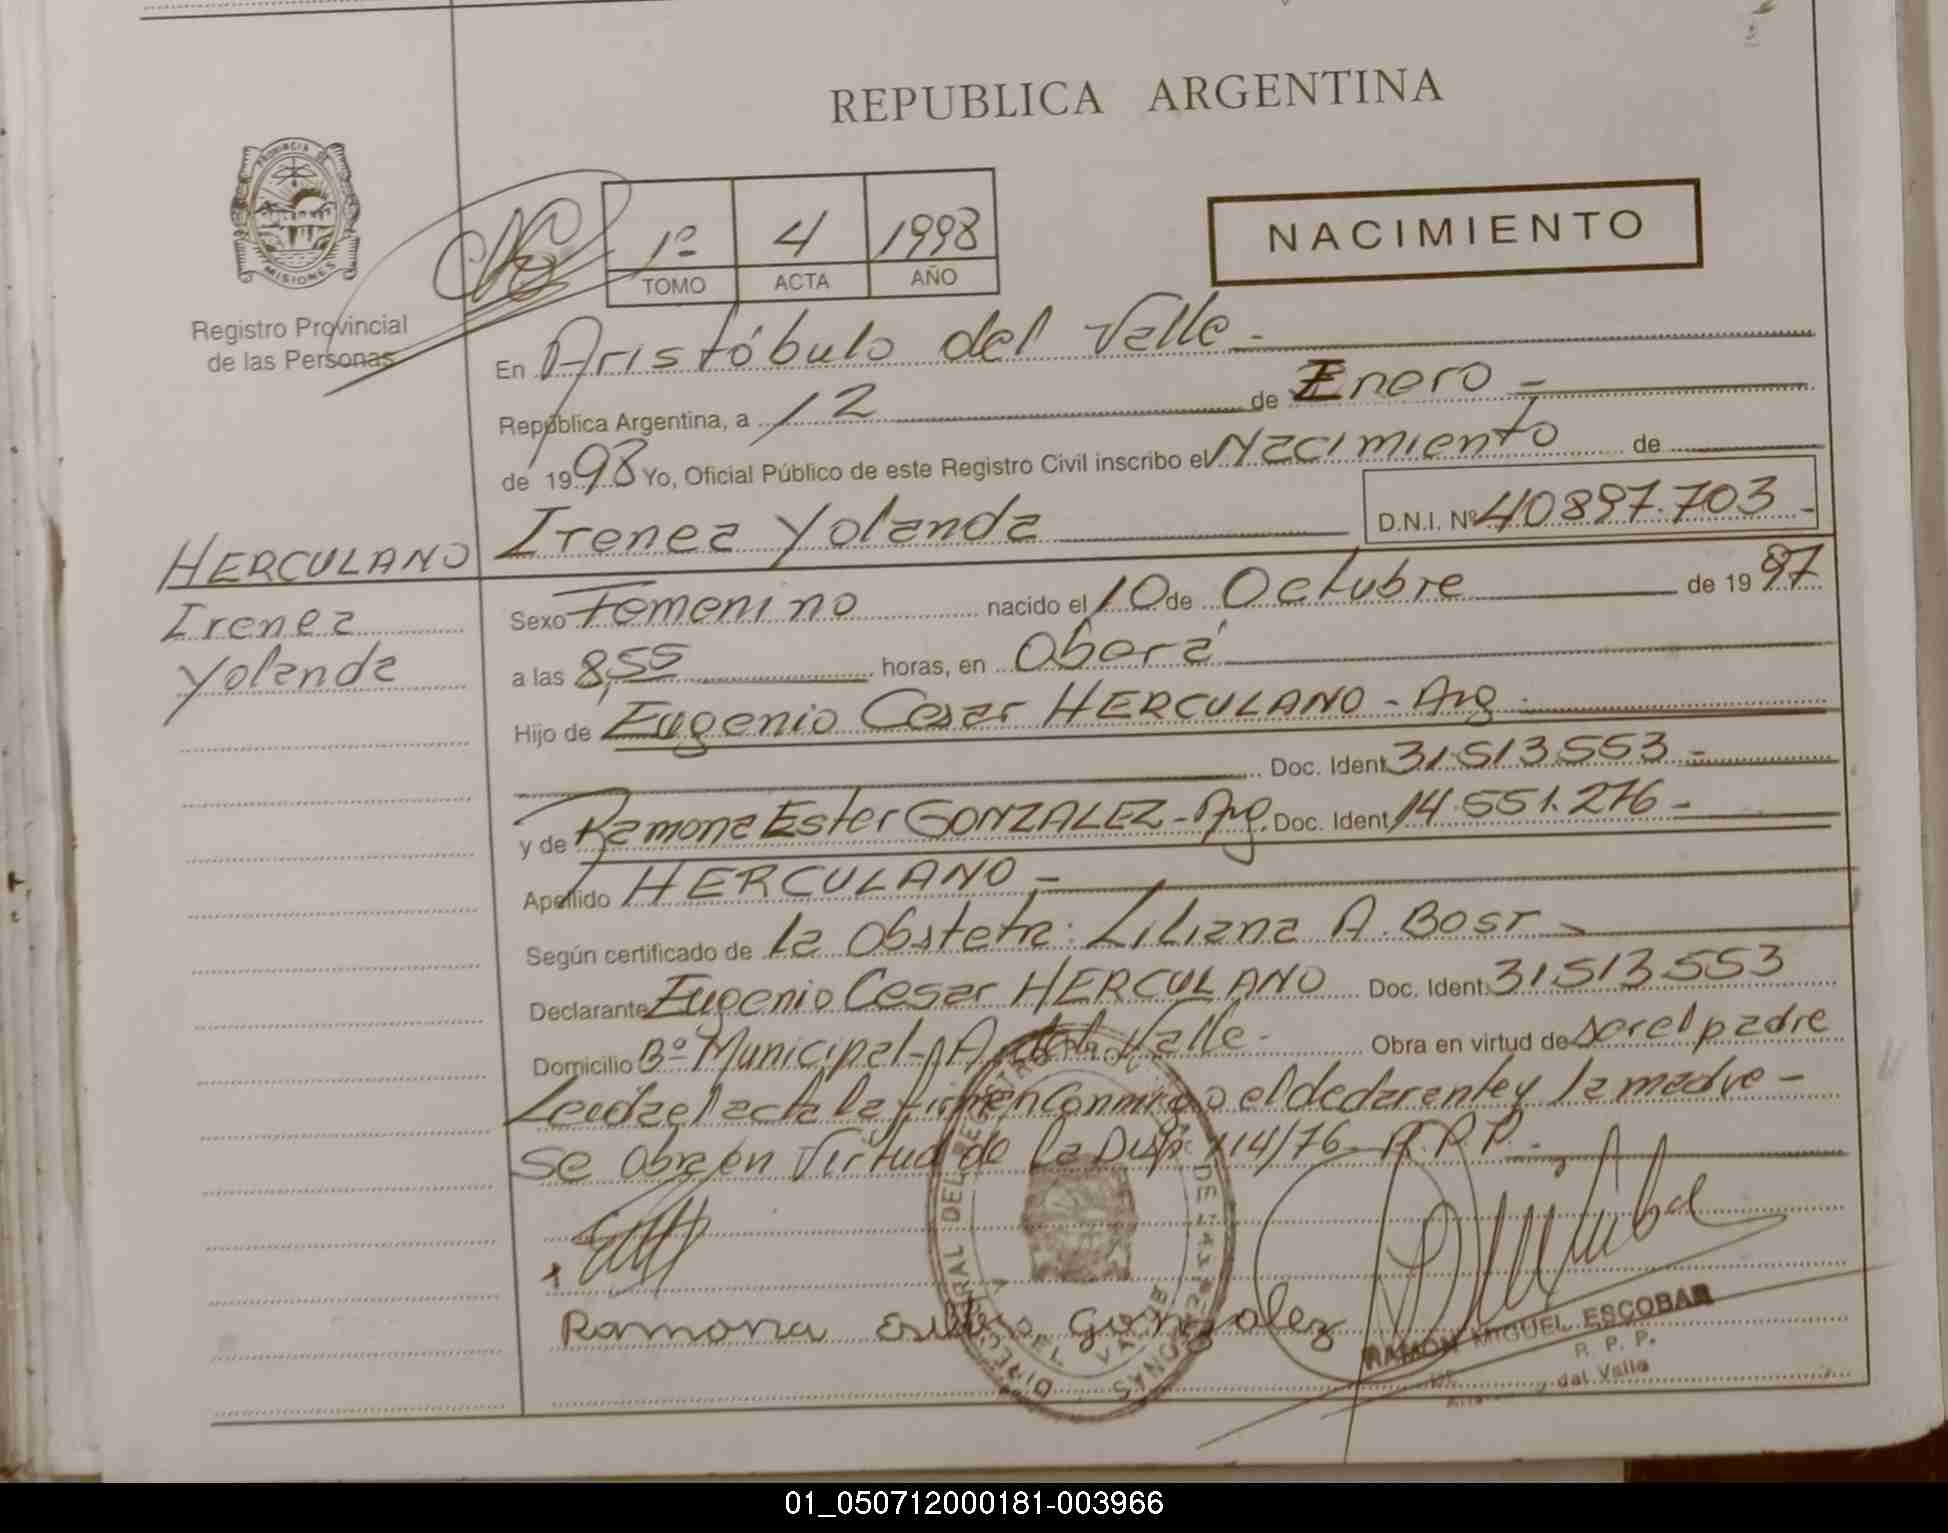 REPUBLICA ARGENTINA
PROVINCIA DE
MISIONES
Registro Provincial
de las Personas
1º 4 1998
TOMO ACTA AÑO
NACIMIENTO
En Aristóbulo del Valle -
República Argentina, a 12 de Enero -
de 1998 Yo, Oficial Público de este Registro Civil inscribo el Nacimiento de
Irenea Yolanda D.N.I. Nº 40897.703 -
HERCULANO
Irenea
Yolanda
Sexo Femenino nacido el 10 de Octubre de 1997
a las 8,55 horas, en Oberá
Hijo de Eugenio Cesar HERCULANO - Arg -
Doc. Ident 31.513.553 -
y de Ramona Ester GONZALEZ - Arg. Doc. Ident 14.551.276 -
Apellido HERCULANO -
Según certificado de la Obstetra: Liliana A. Bost -
Declarante Eugenio Cesar HERCULANO Doc. Ident 31513553
Domicilio Bº Municipal - A. del Valle - Obra en virtud de ser el padre
Leida el acta la firman conmigo el declarante y la madre -
Se obra en Virtud de la Disp. 114/76 R.P.P. -
Ramona Gonzalez
RAMON MIGUEL ESCOBAR
R. P. P.
del Valle
01_050712000181-003966